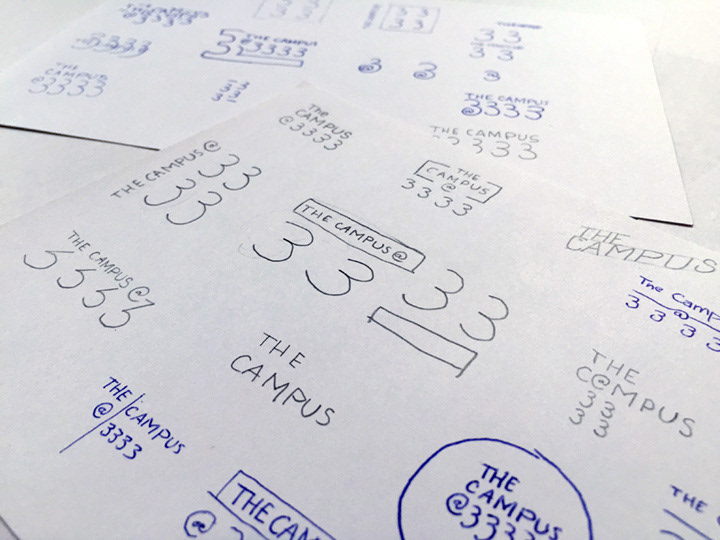 THE CAMPUS
@3333
33
33
33
33
THE CAMP
33
33
@3333
THE CAMPUS
@3333
THE CAMPUS
@3333
33
33
33
@
3
@
3
3
THE CAMPUS
@3333
THE CAMPUS
3333
THE
CAMPUS
@3333
THE
CAMPUS
@
3333
THE CAMPUS @
33
33
THE CAMPUS @
33 33
THE
CAMPUS
The Camp
@
3 3 3 3
THE CAMPUS @
3333
THE
CAMPUS
THE
C@MPUS
33
33
THE CAMPUS
@ 3333
THE CAM
@ 3
THE
CAMPUS
@3333
THE